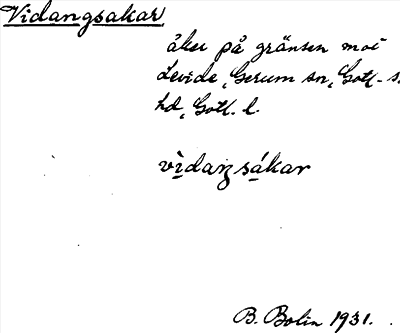 Vidangsakar
åker på gränsen mot
Levide, Gerum sn, Gotl. s.
hd, Gotl. l.
vìdaŋsákar
B. Bolin 1931.